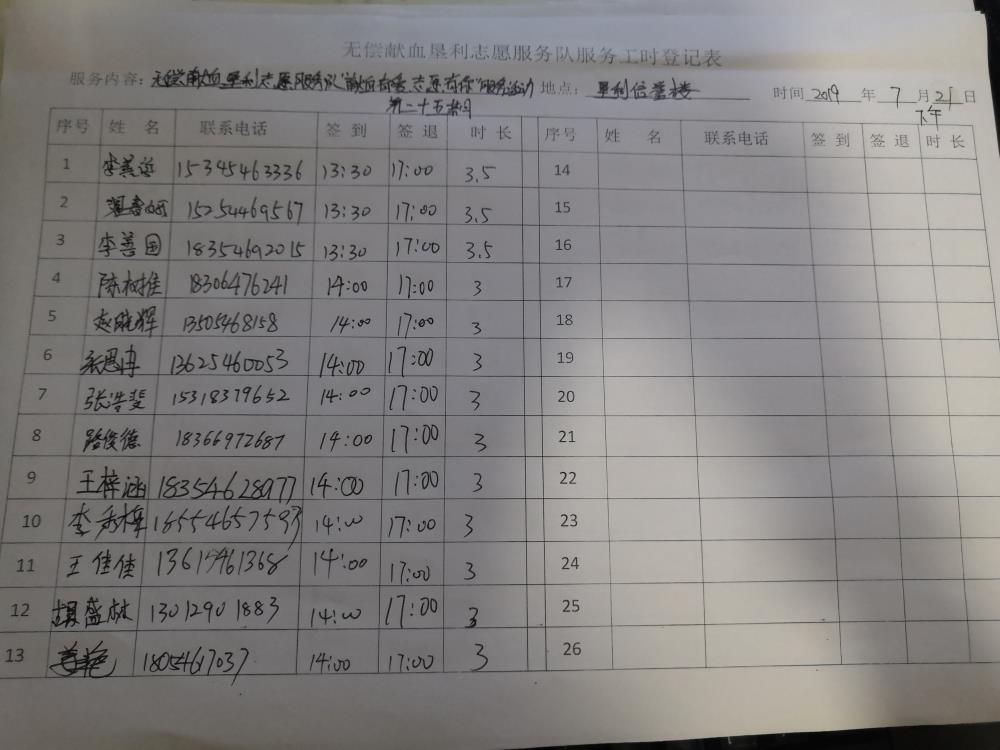 无偿献血垦利志愿服务队服务工时登记表
服务内容：无偿献血垦利志愿服务队"献血有爱，志愿有你"服务活动 地点：垦利信誉楼 时间 2019 年 7 月 21 日
第二十五期 下午
序号 姓 名 联系电话 签 到 签 退 时 长 序号 姓 名 联系电话 签 到 签 退 时 长
1 15345463336 13:30 17:00 3.5 14
2 15254469567 13:30 17:00 3.5 15
3 李善国 18354692015 13:30 17:00 3.5 16
4 陈树推 18306476241 14:00 17:00 3 17
5 赵晓辉 13505468158 14:00 17:00 3 18
6 张思冉 13625460053 14:00 17:00 3 19
7 张浩斐 15318379652 14:00 17:00 3 20
8 路俊德 18366972687 14:00 17:00 3 21
9 王梓涵 18354628977 14:00 17:00 3 22
10 李 18554657593 14:00 17:00 3 23
11 王佳佳 13615461368 14:00 17:00 3 24
12 胡盛林 13012901883 14:00 17:00 3 25
13 18054617037 14:00 17:00 3 26